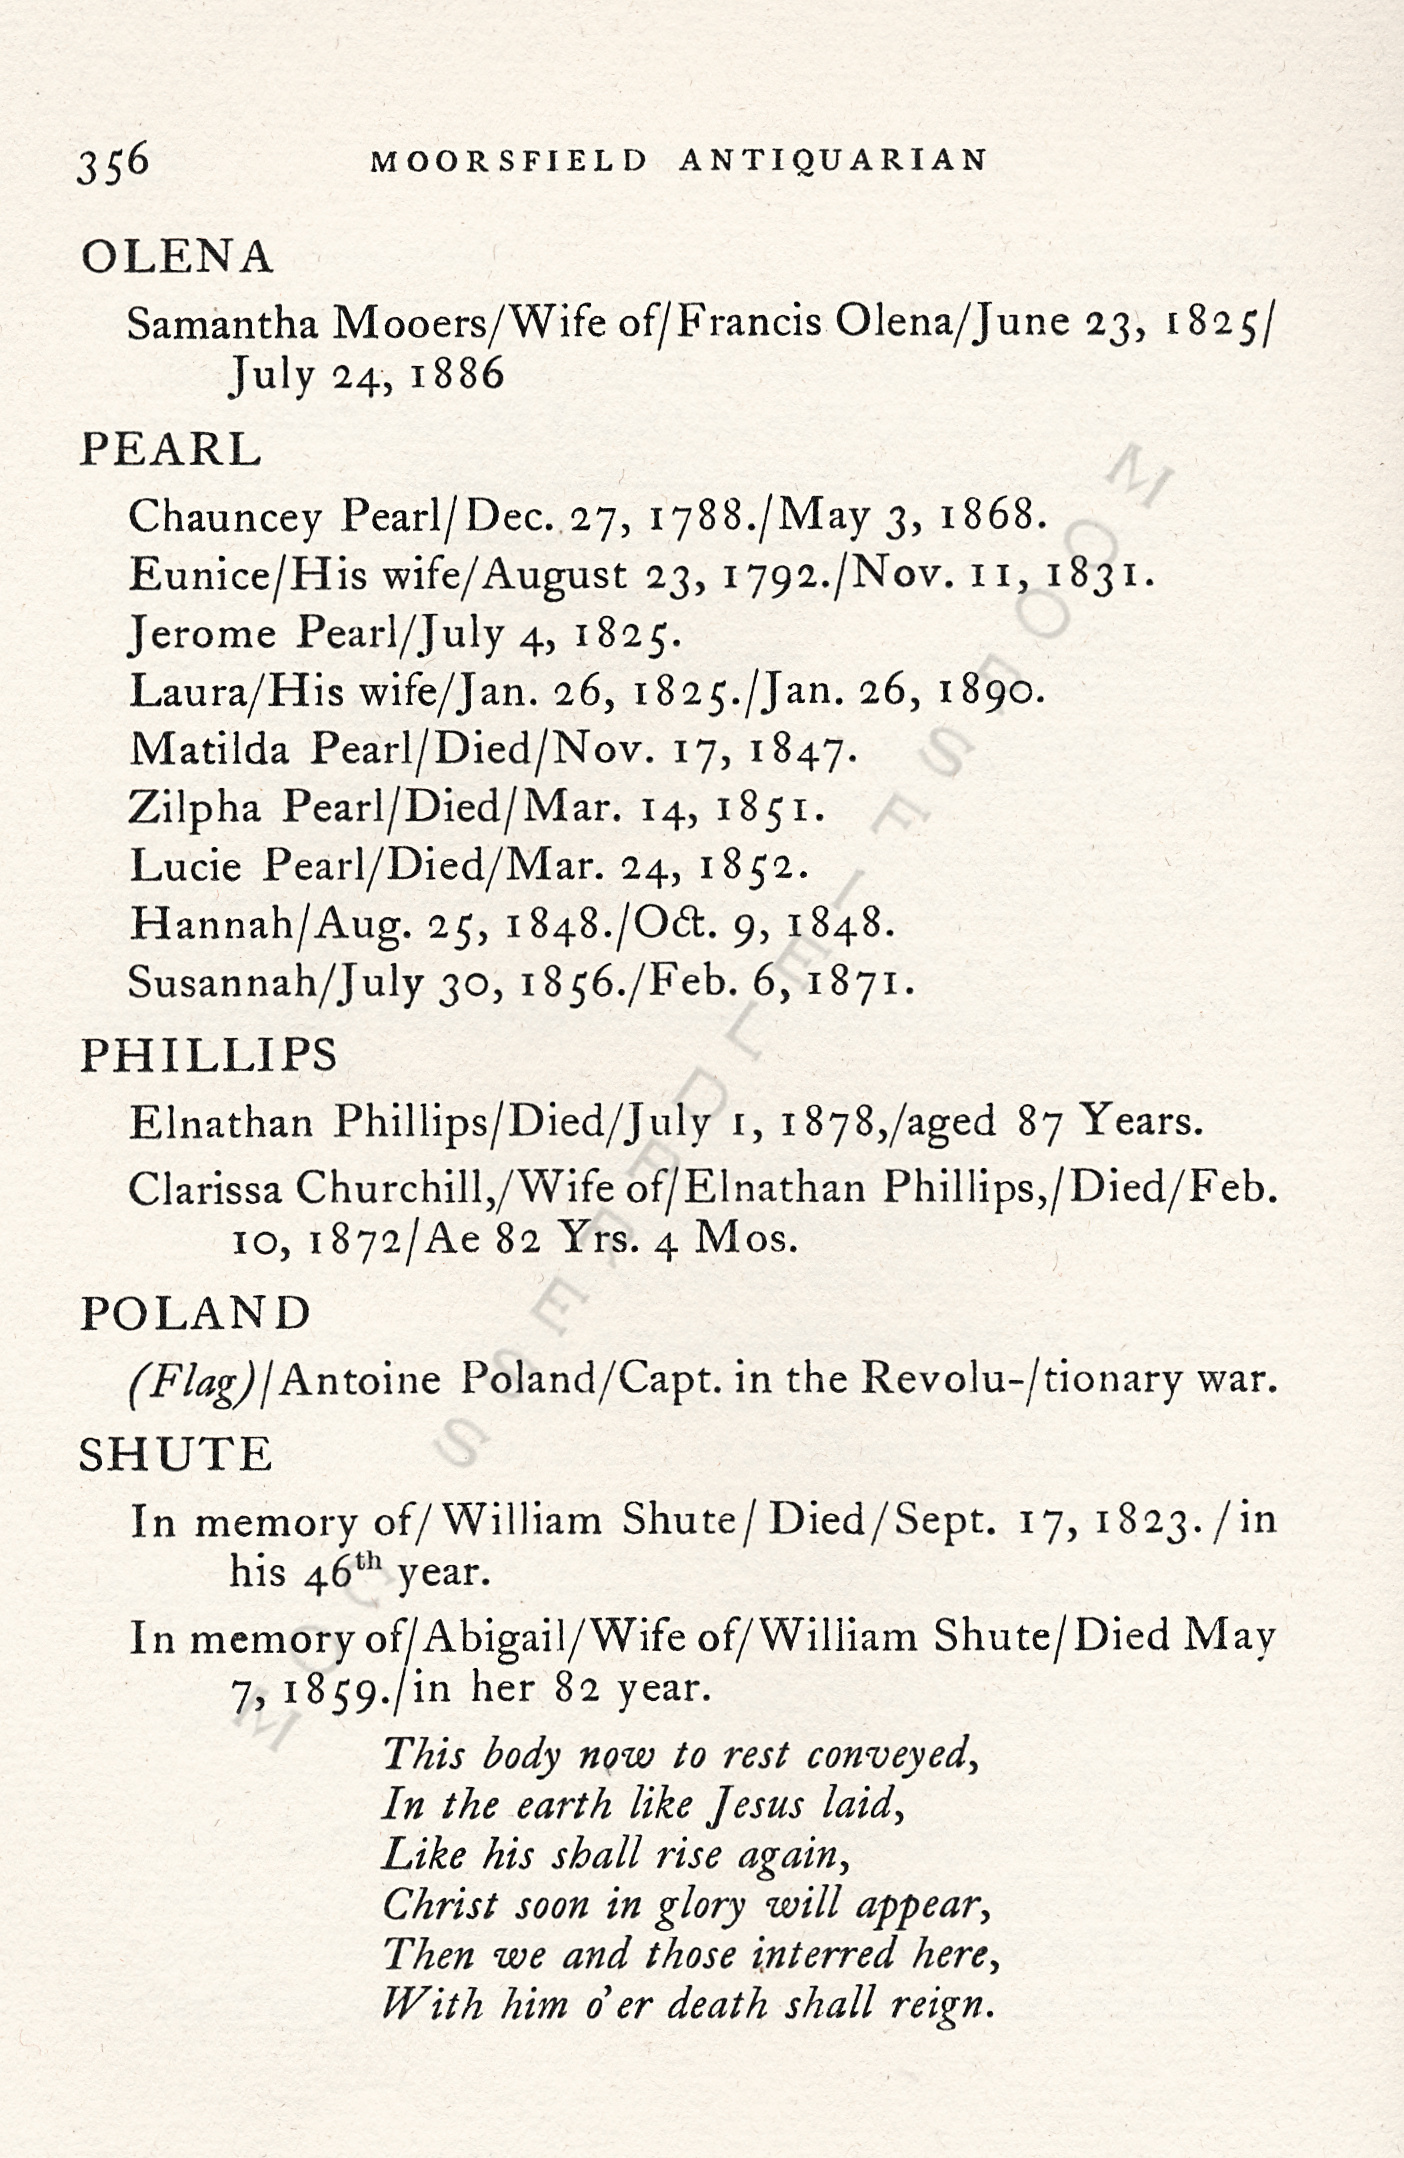 356 MOORSFIELD ANTIQUARIAN
OLENA
Samantha Mooers/Wife of/Francis Olena/June 23, 1825/
July 24, 1886
PEARL
Chauncey Pearl/Dec. 27, 1788./May 3, 1868.
Eunice/His wife/August 23, 1792./Nov. 11, 1831.
Jerome Pearl/July 4, 1825.
Laura/His wife/Jan. 26, 1825./Jan. 26, 1890.
Matilda Pearl/Died/Nov. 17, 1847.
Zilpha Pearl/Died/Mar. 14, 1851.
Lucie Pearl/Died/Mar. 24, 1852.
Hannah/Aug. 25, 1848./Oct. 9, 1848.
Susannah/July 30, 1856./Feb. 6, 1871.
PHILLIPS
Elnathan Phillips/Died/July 1, 1878,/aged 87 Years.
Clarissa Churchill,/Wife of/Elnathan Phillips,/Died/Feb.
10, 1872/Ae 82 Yrs. 4 Mos.
POLAND
(Flag)/Antoine Poland/Capt. in the Revolu-/tionary war.
SHUTE
In memory of/William Shute/Died/Sept. 17, 1823./in
his 46th year.
In memory of/Abigail/Wife of/William Shute/Died May
7, 1859./in her 82 year.
This body now to rest conveyed,
In the earth like Jesus laid,
Like his shall rise again,
Christ soon in glory will appear,
Then we and those interred here,
With him o'er death shall reign.
MOORSFIELDPRESS.COM